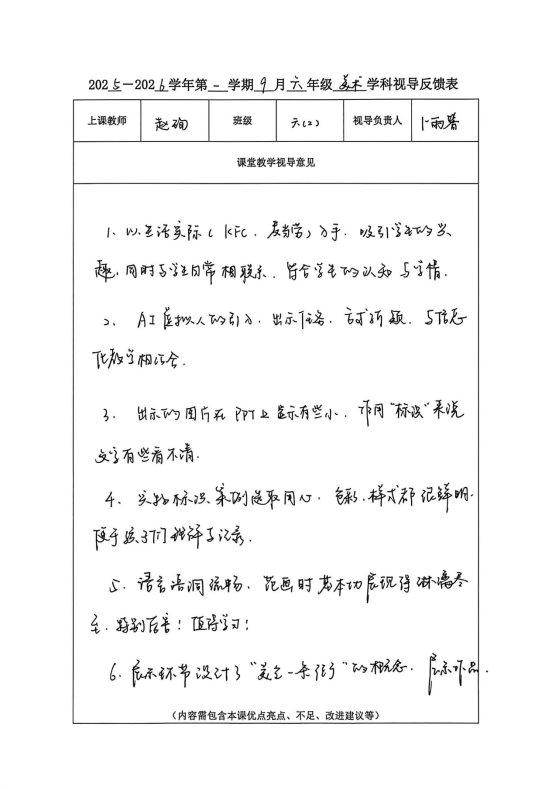 2025—2026学年第一学期9月六年级美术学科视导反馈表
上课教师 赵珣 班级 六(2) 视导负责人 卜雨馨
课堂教学视导意见
1、以生活实际(KFC、麦当劳)入手,吸引学生的兴
趣,同时与学生日常相联系,符合学生的认知与学情.
2、AI虚拟人的引入,出示任务,方式新颖,与信息
化教学相结合.
3、出示的图片在PPT上显示有些小,作用"标识"来说
文字有些看不清.
4、实物标识、案例选取用心,色彩、样式都很鲜明,
便于孩子们理解与记录.
5、语言语调流畅,范画时基本功展现得淋漓尽
至,特别厉害!值得学习!
6、展示环节设计了"美食一条街"的概念,展示作品.
(内容需包含本课优点亮点、不足、改进建议等)